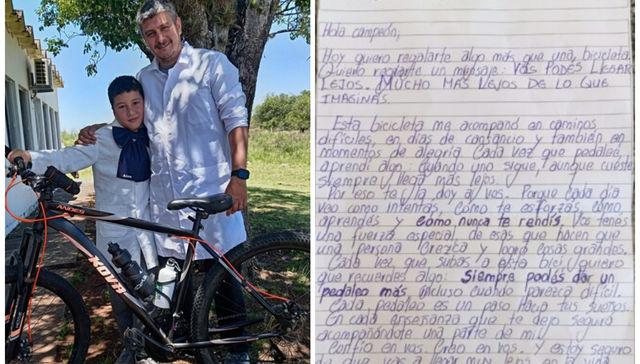 ANDES
NOVA
Hola campeón,
Hoy quiero regalarte algo más que una bicicleta.
Quiero regalarte un mensaje: VOS PODÉS LLEGAR
LEJOS. MUCHO MÁS LEJOS DE LO QUE
IMAGINAS.
Esta bicicleta me acompañó en caminos
difíciles, en días de cansancio y también en
momentos de alegría. Cada vez que pedaleé,
aprendí algo. Cuando uno sigue, aunque cueste
siempre llega más lejos
Por eso te la doy a vos. Porque cada día
veo como intentás, cómo te esforzás, cómo
aprendés y cómo nunca te rendís. Vos tenés
una fuerza especial, de esas que hacen que
una persona crezca y logre cosas grandes.
Cada vez que subas a esta bici, quiero
que recuerdes algo: Siempre podés dar un
pedaleo más, incluso cuando parezca difícil.
Cada pedaleo es un paso hacia tus sueños.
En cada enseñanza que te dejo seguiré
acompañándote una parte de mí.
Confío en vos. Creo en vos. Y estoy seguro